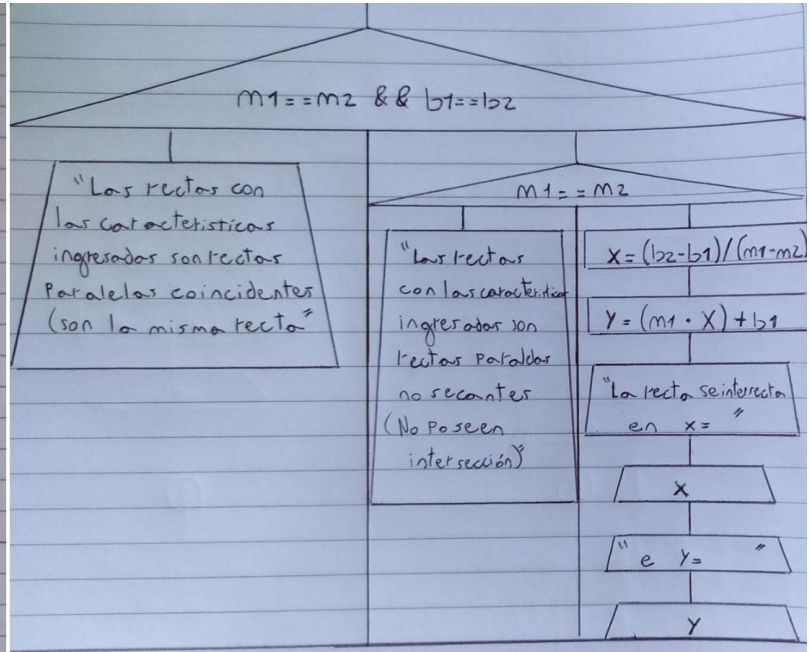 m1==m2 && b1==b2
"Las rectas con
las caracteristicas
ingresadas son rectas
Paralelas coincidentes
(son la misma recta"
m1==m2
"Las rectas
con las caracteristicas
ingresadas son
rectas paralelas
no secantes
(No Poseen
intersección)"
X=(b2-b1)/(m1-m2)
Y=(m1·X)+b1
"La recta se interrecta
en x= "
X
"e Y= "
Y